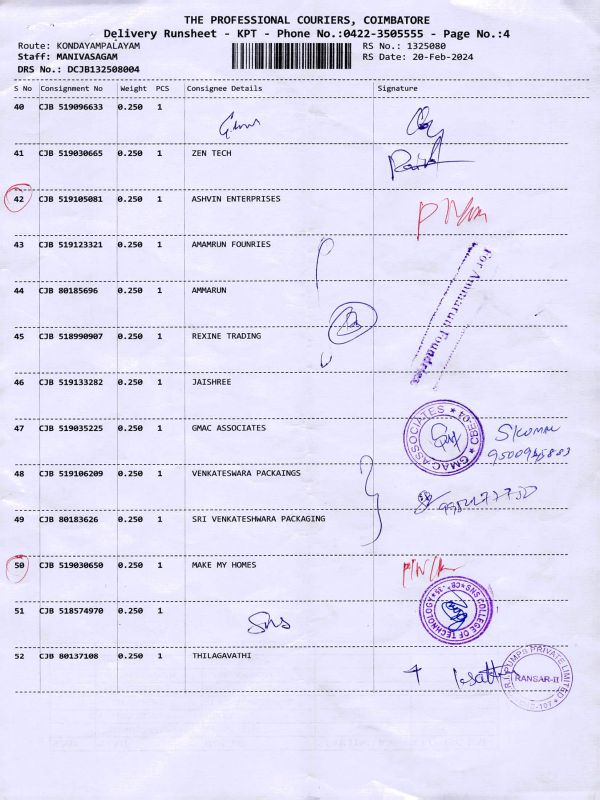 THE PROFESSIONAL COURIERS, COIMBATORE
Delivery Runsheet - KPT - Phone No.:0422-3505555 - Page No.:4
Route: KONDAYAMPALAYAM RS No.: 1325080
Staff: MANIVASAGAM RS Date: 20-Feb-2024
DRS No.: DCJB132508004
S No Consignment No Weight PCS Consignee Details Signature
40 CJB 519096633 0.250 1
41 CJB 519030665 0.250 1 ZEN TECH
42 CJB 519105081 0.250 1 ASHVIN ENTERPRISES
43 CJB 519123321 0.250 1 AMAMRUN FOUNRIES
For Ammarun Foundries
44 CJB 80185696 0.250 1 AMMARUN
45 CJB 518990907 0.250 1 REXINE TRADING
46 CJB 519133282 0.250 1 JAISHREE
47 CJB 519035225 0.250 1 GMAC ASSOCIATES
GMAC ASSOCIATES * CBE-04 *
48 CJB 519106209 0.250 1 VENKATESWARA PACKAINGS
49 CJB 80183626 0.250 1 SRI VENKATESHWARA PACKAGING
50 CJB 519030650 0.250 1 MAKE MY HOMES
51 CJB 518574970 0.250 1 SNS
SNS COLLEGE OF TECHNOLOGY * CB -35 *
52 CJB 80137108 0.250 1 THILAGAVATHI
PUMPS PRIVATE LIMITED
RANSAR-II